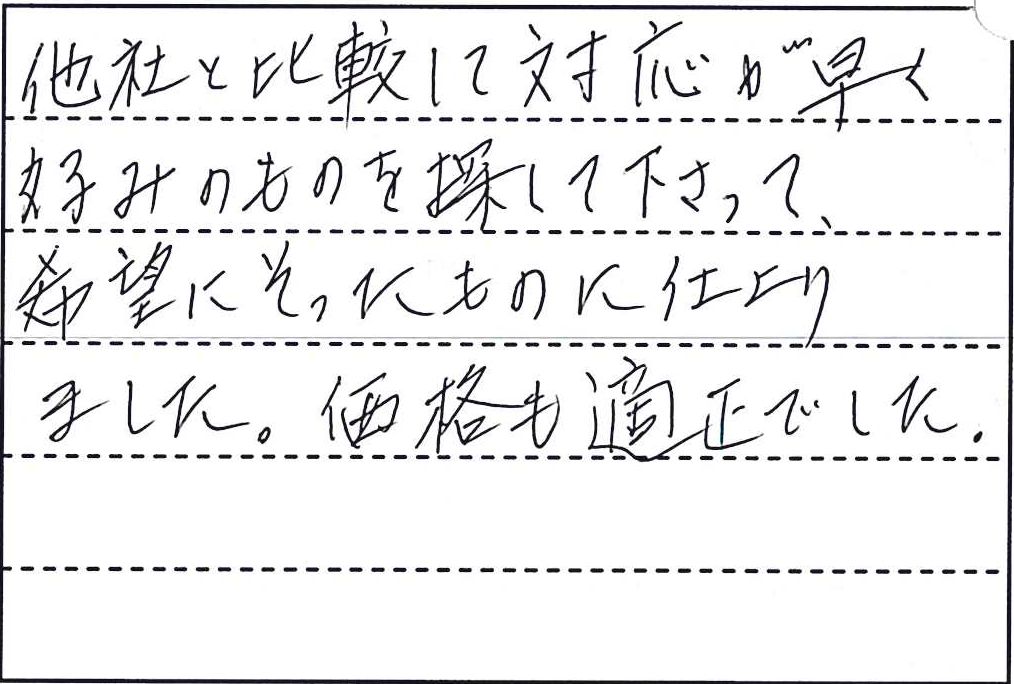 他社と比較して対応が早く
好みのものを探して下さって、
希望にそったものに仕上り
ました。価格も適正でした.